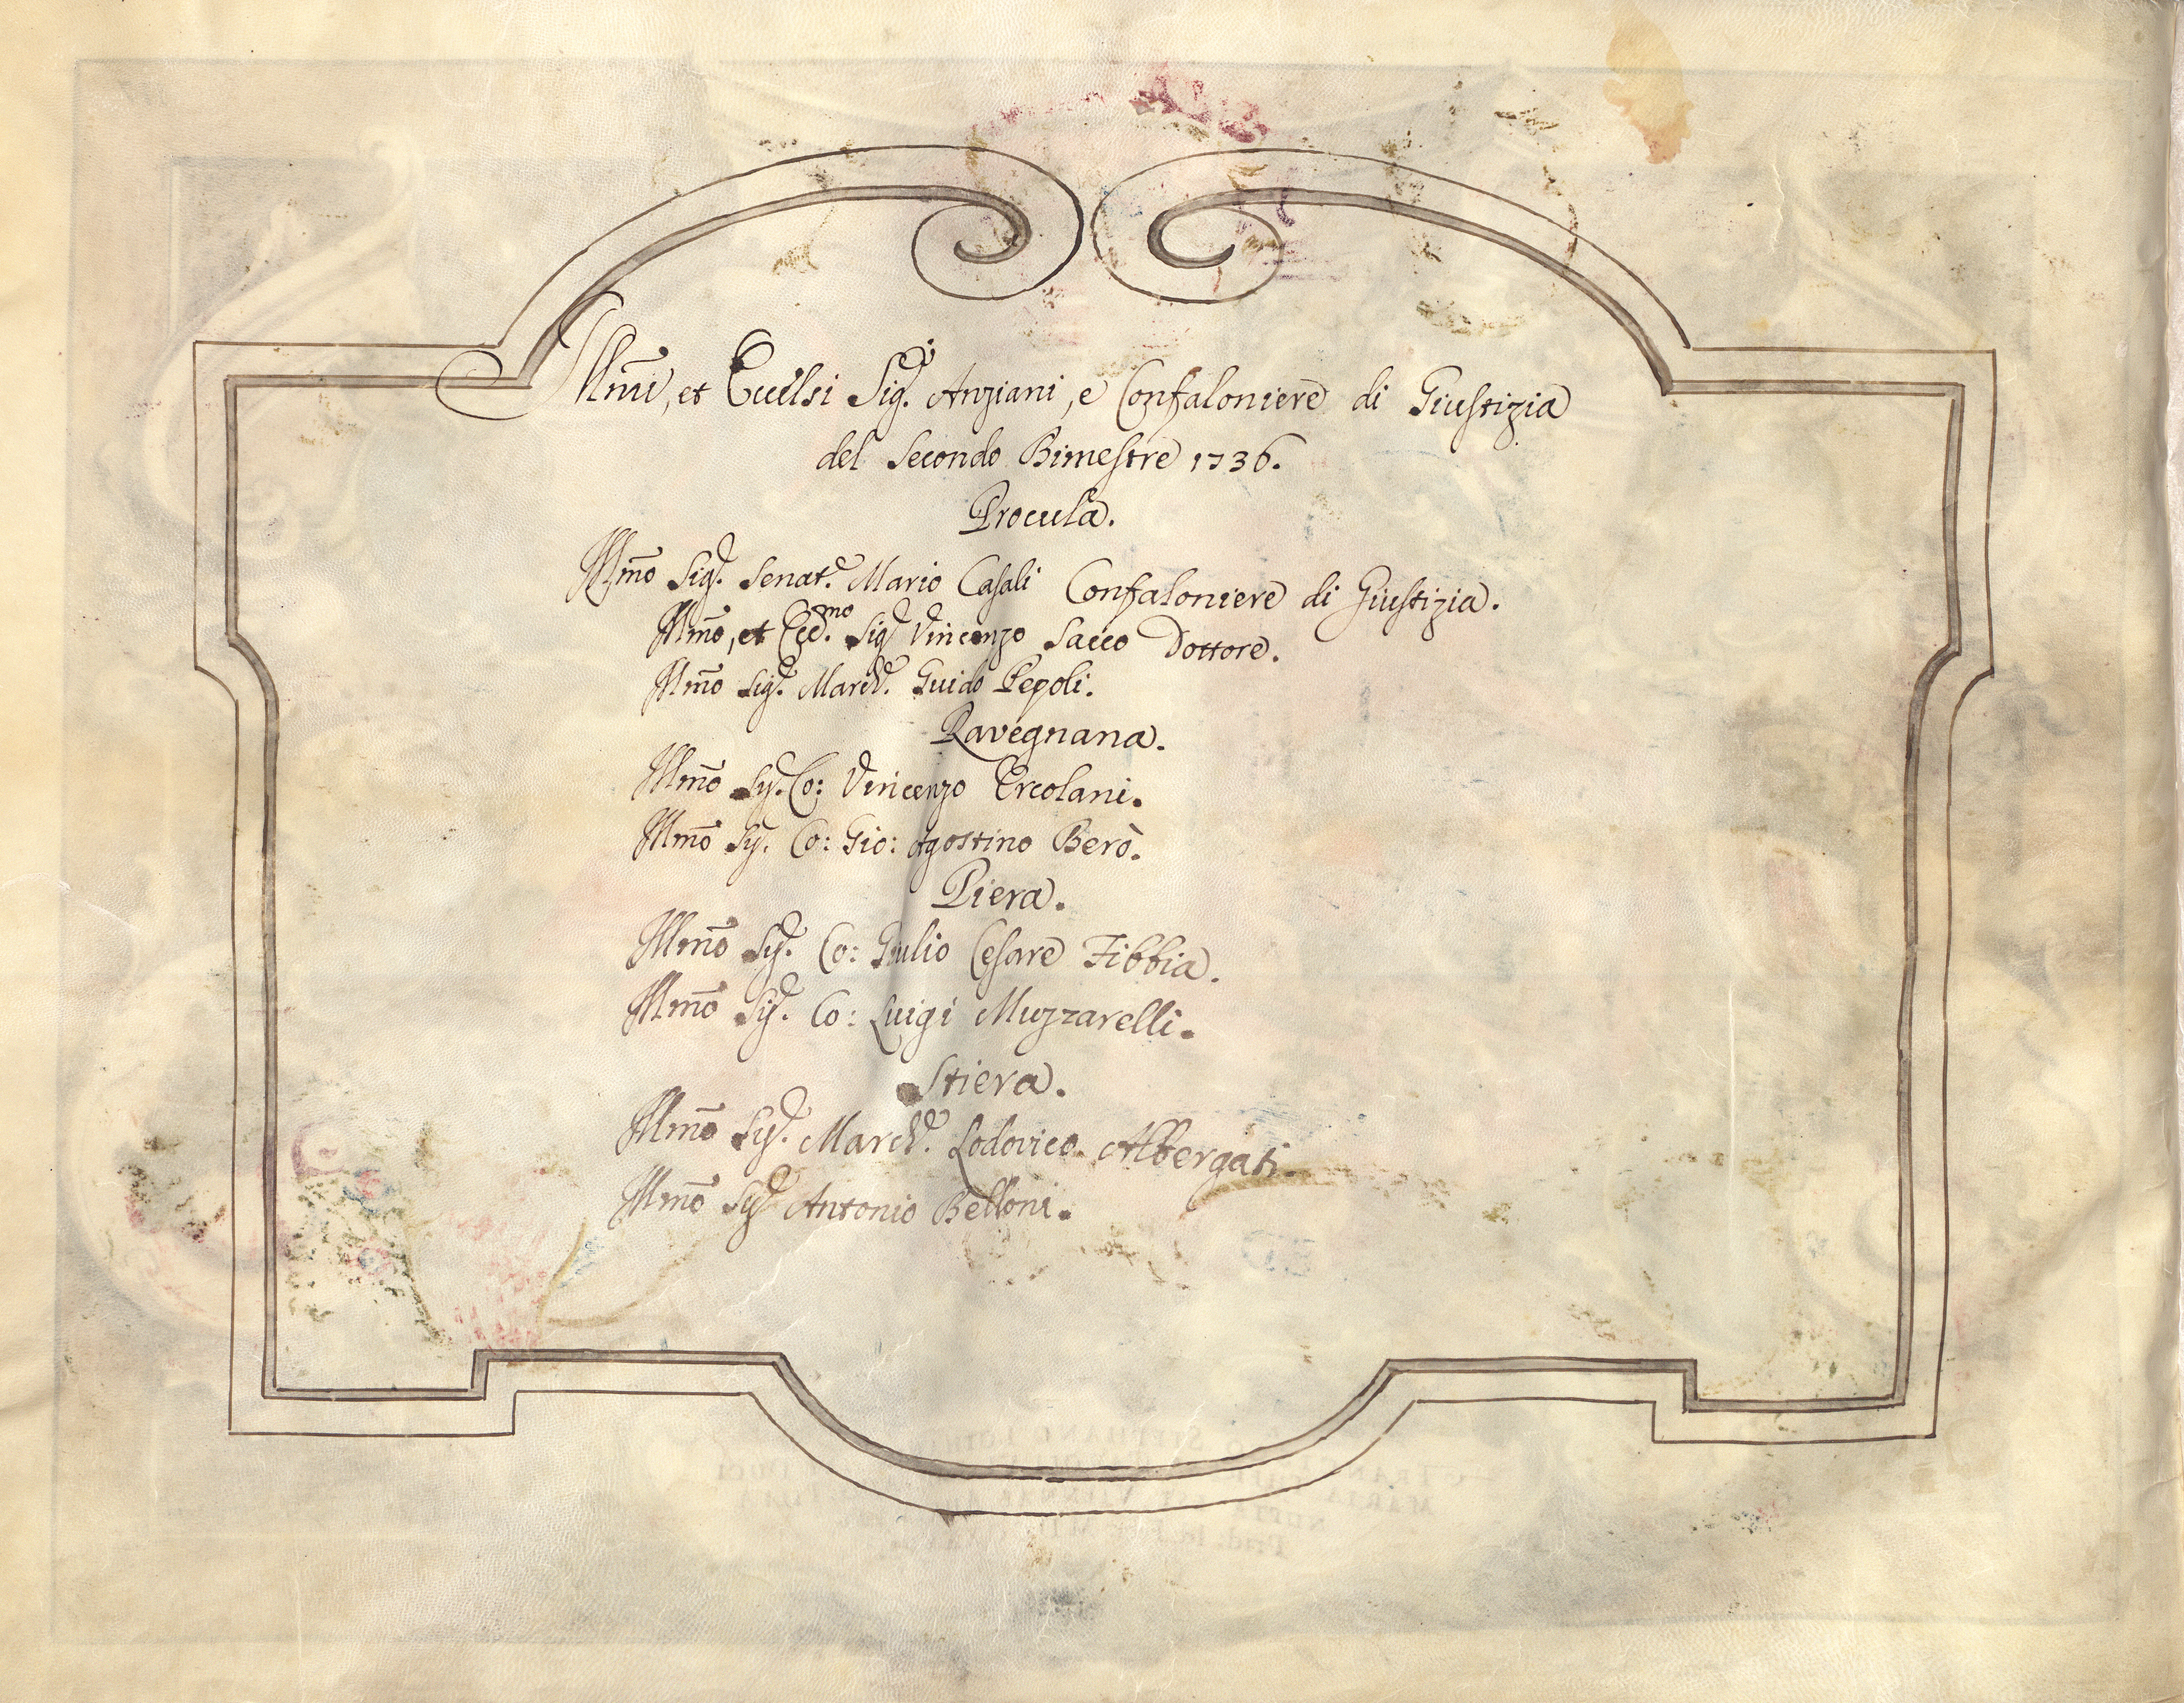 Illm̃i, et Eccelsi Sigri. Anziani, e Confaloniere di Giustizia
del Secondo Bimestre 1736.
Procula.
Illm̃o Sigr. Senatre. Mario Casali Confaloniere di Giustizia.
Illm̃o, et Eccmo. Sigr Vincenzo Sacco Dottore.
Illm̃o Sigr. March. Guido Pepoli.
Ravegnana.
Illm̃o Sigr. Co: Vincenzo Ercolani.
Illm̃o Sigr. Co: Gio: Agostino Berò.
Piera.
Illm̃o Sigr. Co: Giulio Cesare Fibbia.
Illm̃o Sigr. Co: Luigi Muzzarelli.
Stiera.
Illm̃o Sigr. March. Lodovico Albergati.
Illm̃o Sigr Antonio Belloni.